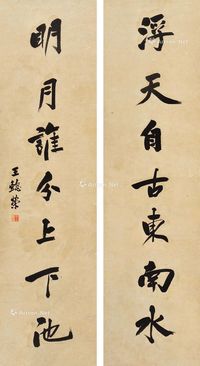 浮天自古東南水
明月誰分上下池
王懿榮